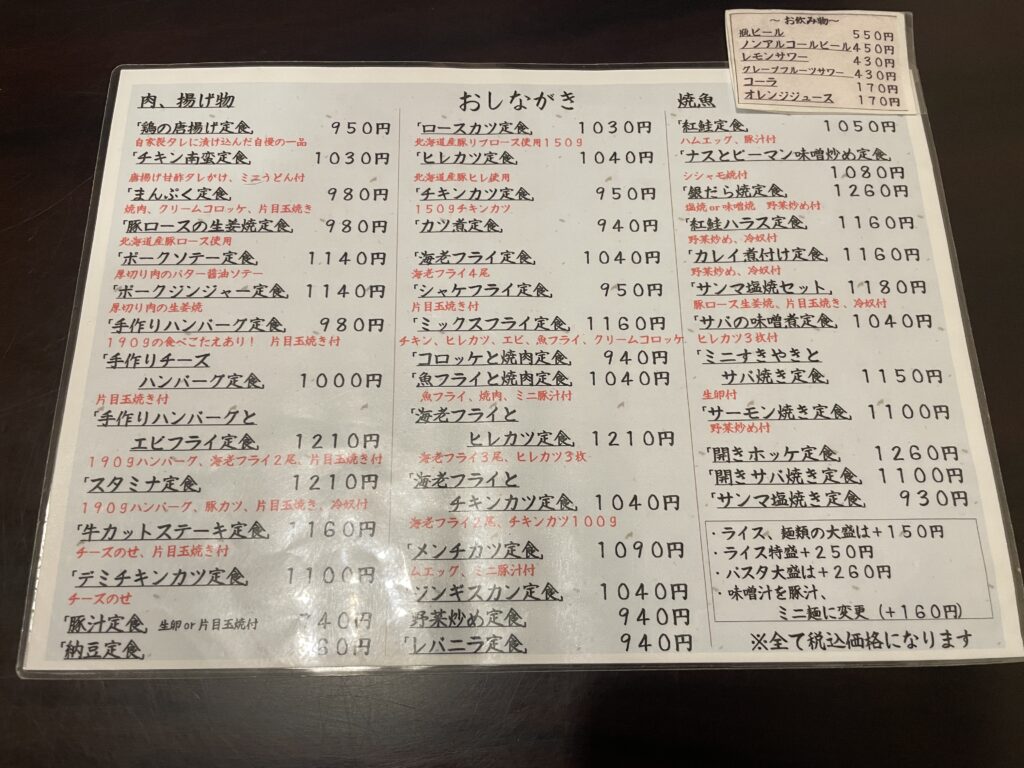 ～ お飲み物～
瓶ビール 550円
ノンアルコールビール 450円
レモンサワー 430円
グレープフルーツサワー 430円
コーラ 170円
オレンジジュース 170円
おしながき
肉、揚げ物
「鶏の唐揚げ定食」 950円
自家製タレに漬け込んだ自慢の一品
「チキン南蛮定食」 1030円
唐揚げ甘酢ダレかけ、ミニうどん付
「まんぷく定食」 980円
焼肉、クリームコロッケ、片目玉焼き
「豚ロースの生姜焼定食」 980円
北海道産豚ロース使用
「ポークソテー定食」 1140円
厚切り肉のバター醤油ソテー
「ポークジンジャー定食」 1140円
厚切り肉の生姜焼
「手作りハンバーグ定食」 980円
190gの食べごたえあり！ 片目玉焼き付
「手作りチーズ
ハンバーグ定食」 1000円
片目玉焼き付
「手作りハンバーグと
エビフライ定食」 1210円
190gハンバーグ、海老フライ2尾、片目玉焼き付
「スタミナ定食」 1210円
190gハンバーグ、豚カツ、片目玉焼き、冷奴付
「牛カットステーキ定食」 1160円
チーズのせ、片目玉焼き付
「デミチキンカツ定食」 1100円
チーズのせ
「豚汁定食」 生卵or片目玉焼付 40円
「納豆定食」 60円
「ロースカツ定食」 1030円
北海道産豚リブロース使用150g
「ヒレカツ定食」 1040円
北海道産豚ヒレ使用
「チキンカツ定食」 950円
150gチキンカツ
「カツ煮定食」 940円
「海老フライ定食」 1040円
海老フライ4尾
「シャケフライ定食」 950円
片目玉焼き付
「ミックスフライ定食」 1160円
チキン、ヒレカツ、エビ、魚フライ、クリームコロッケ
「コロッケと焼肉定食」 940円
「魚フライと焼肉定食」 1040円
魚フライ、焼肉、ミニ豚汁付
「海老フライと
ヒレカツ定食」 1210円
海老フライ3尾、ヒレカツ3枚
「海老フライと
チキンカツ定食」 1040円
海老フライ2尾、チキンカツ100g
「メンチカツ定食」 1090円
ハムエッグ、ミニ豚汁付
「ジンギスカン定食」 1040円
「野菜炒め定食」 940円
「レバニラ定食」 940円
焼魚
「紅鮭定食」 1050円
ハムエッグ、豚汁付
「ナスとピーマン味噌炒め定食」
シシャモ焼付 1080円
「銀だら焼定食」 1260円
塩焼or味噌焼 野菜炒め付
「紅鮭ハラス定食」 1160円
野菜炒め、冷奴付
「カレイ煮付け定食」 1160円
野菜炒め、冷奴付
「サンマ塩焼セット」 1180円
豚ロース生姜焼、片目玉焼き、冷奴付
「サバの味噌煮定食」 1040円
ヒレカツ3枚付
「ミニすきやきと
サバ焼き定食」 1150円
生卵付
「サーモン焼き定食」 1100円
野菜炒め付
「開きホッケ定食」 1260円
「開きサバ焼き定食」 1100円
「サンマ塩焼き定食」 930円
・ライス、麺類の大盛は+150円
・ライス特盛+250円
・パスタ大盛は+260円
・味噌汁を豚汁、
ミニ麺に変更（+160円）
※全て税込価格になります